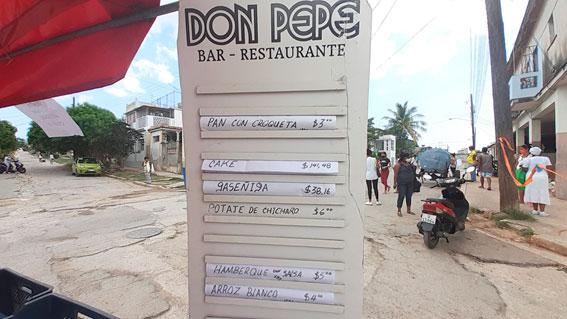 DON PEPE
BAR - RESTAURANTE
PAN CON CROQUETA $3.00
CAKE $141,48
GASEÑIGA $38.16
POTATE DE CHICHARO $6.00
HAMBERQUE CON SALSA $5.00
ARROZ BLANCO $4.00